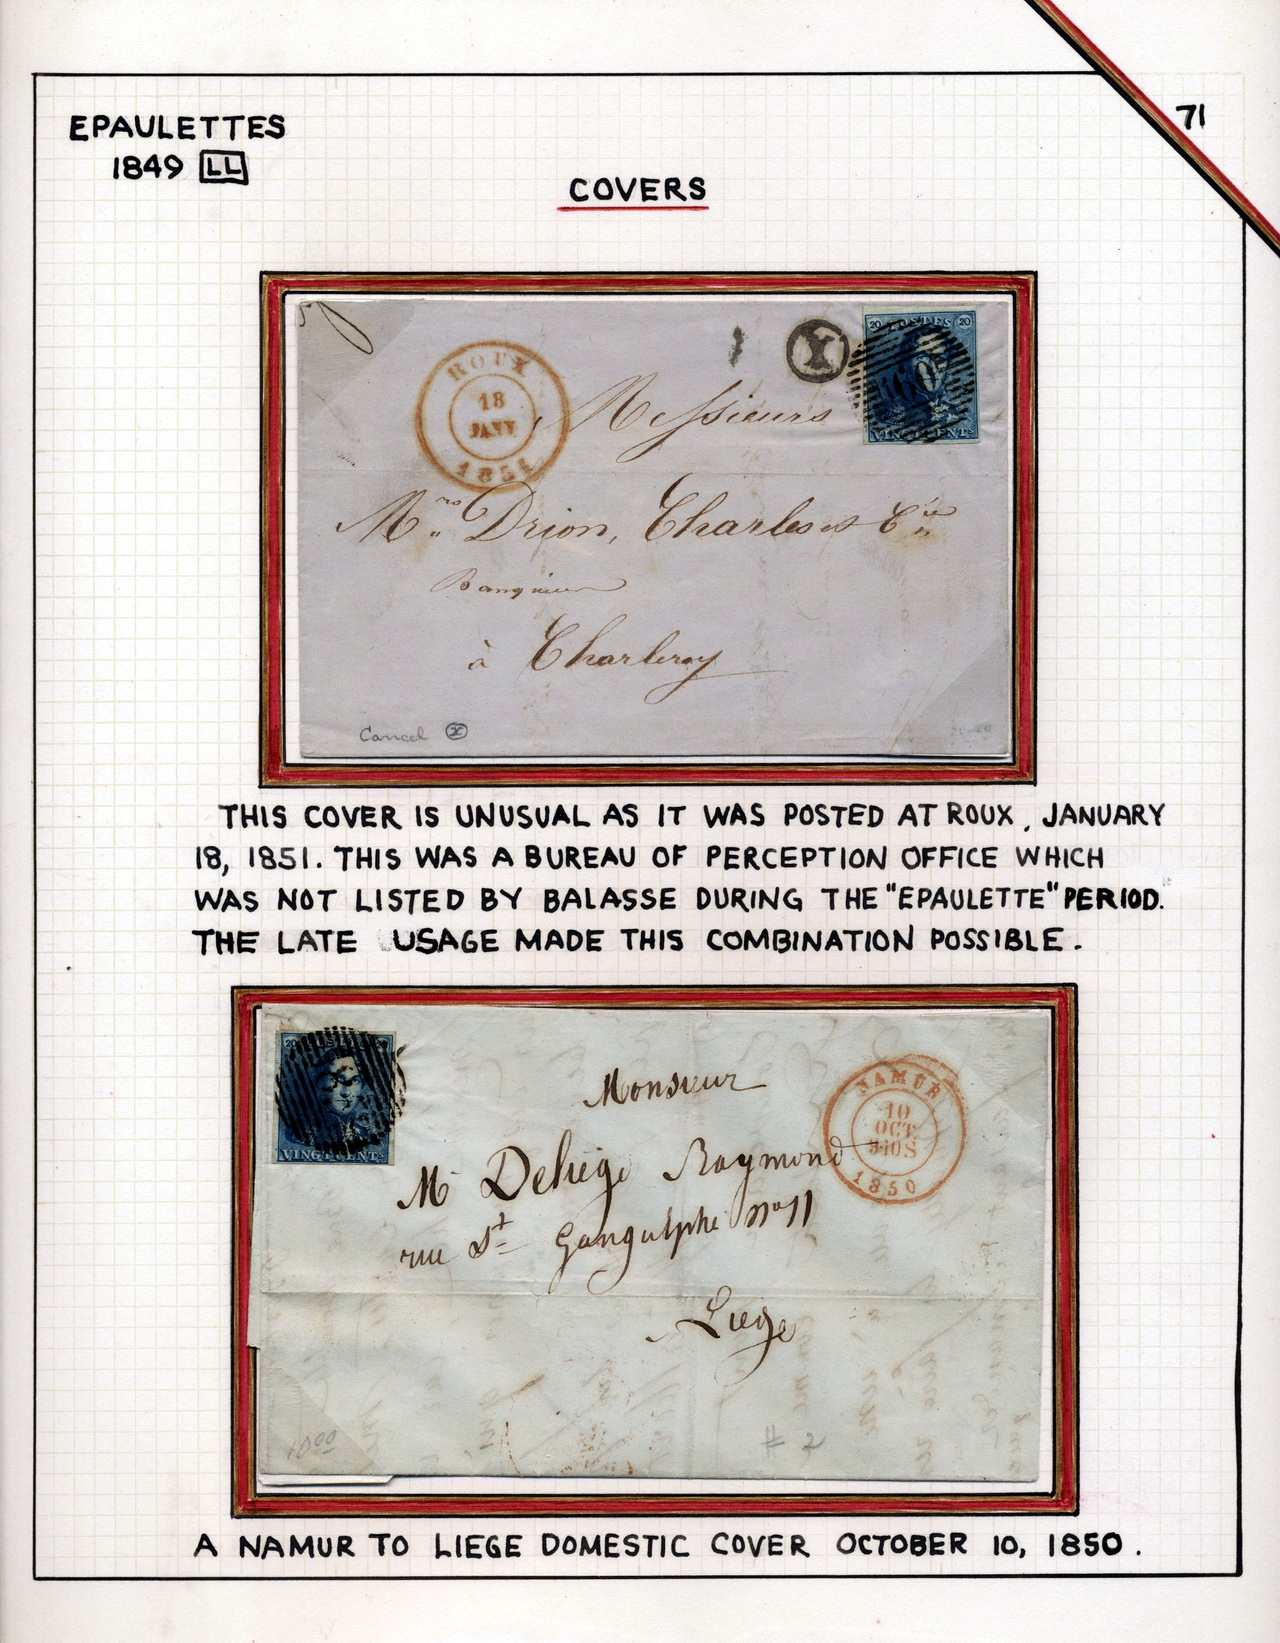 71
EPAULETTES
1849 LL
COVERS
20 POSTES 20
VINGT CENTS
Y
ROUX
18
JANV
1851
Messieurs
Mrs Drion, Charles et Cie
Banquiers
à Charleroy
Cancel
THIS COVER IS UNUSUAL AS IT WAS POSTED AT ROUX, JANUARY
18, 1851. THIS WAS A BUREAU OF PERCEPTION OFFICE WHICH
WAS NOT LISTED BY BALASSE DURING THE "EPAULETTE" PERIOD.
THE LATE USAGE MADE THIS COMBINATION POSSIBLE.
VINGT CENTS
NAMUR
10
OCT
1850
Monsieur
Mr Deliége Raymond
rue St Gangulphe no 11
Liege
1000
# 2
A NAMUR TO LIEGE DOMESTIC COVER OCTOBER 10, 1850.